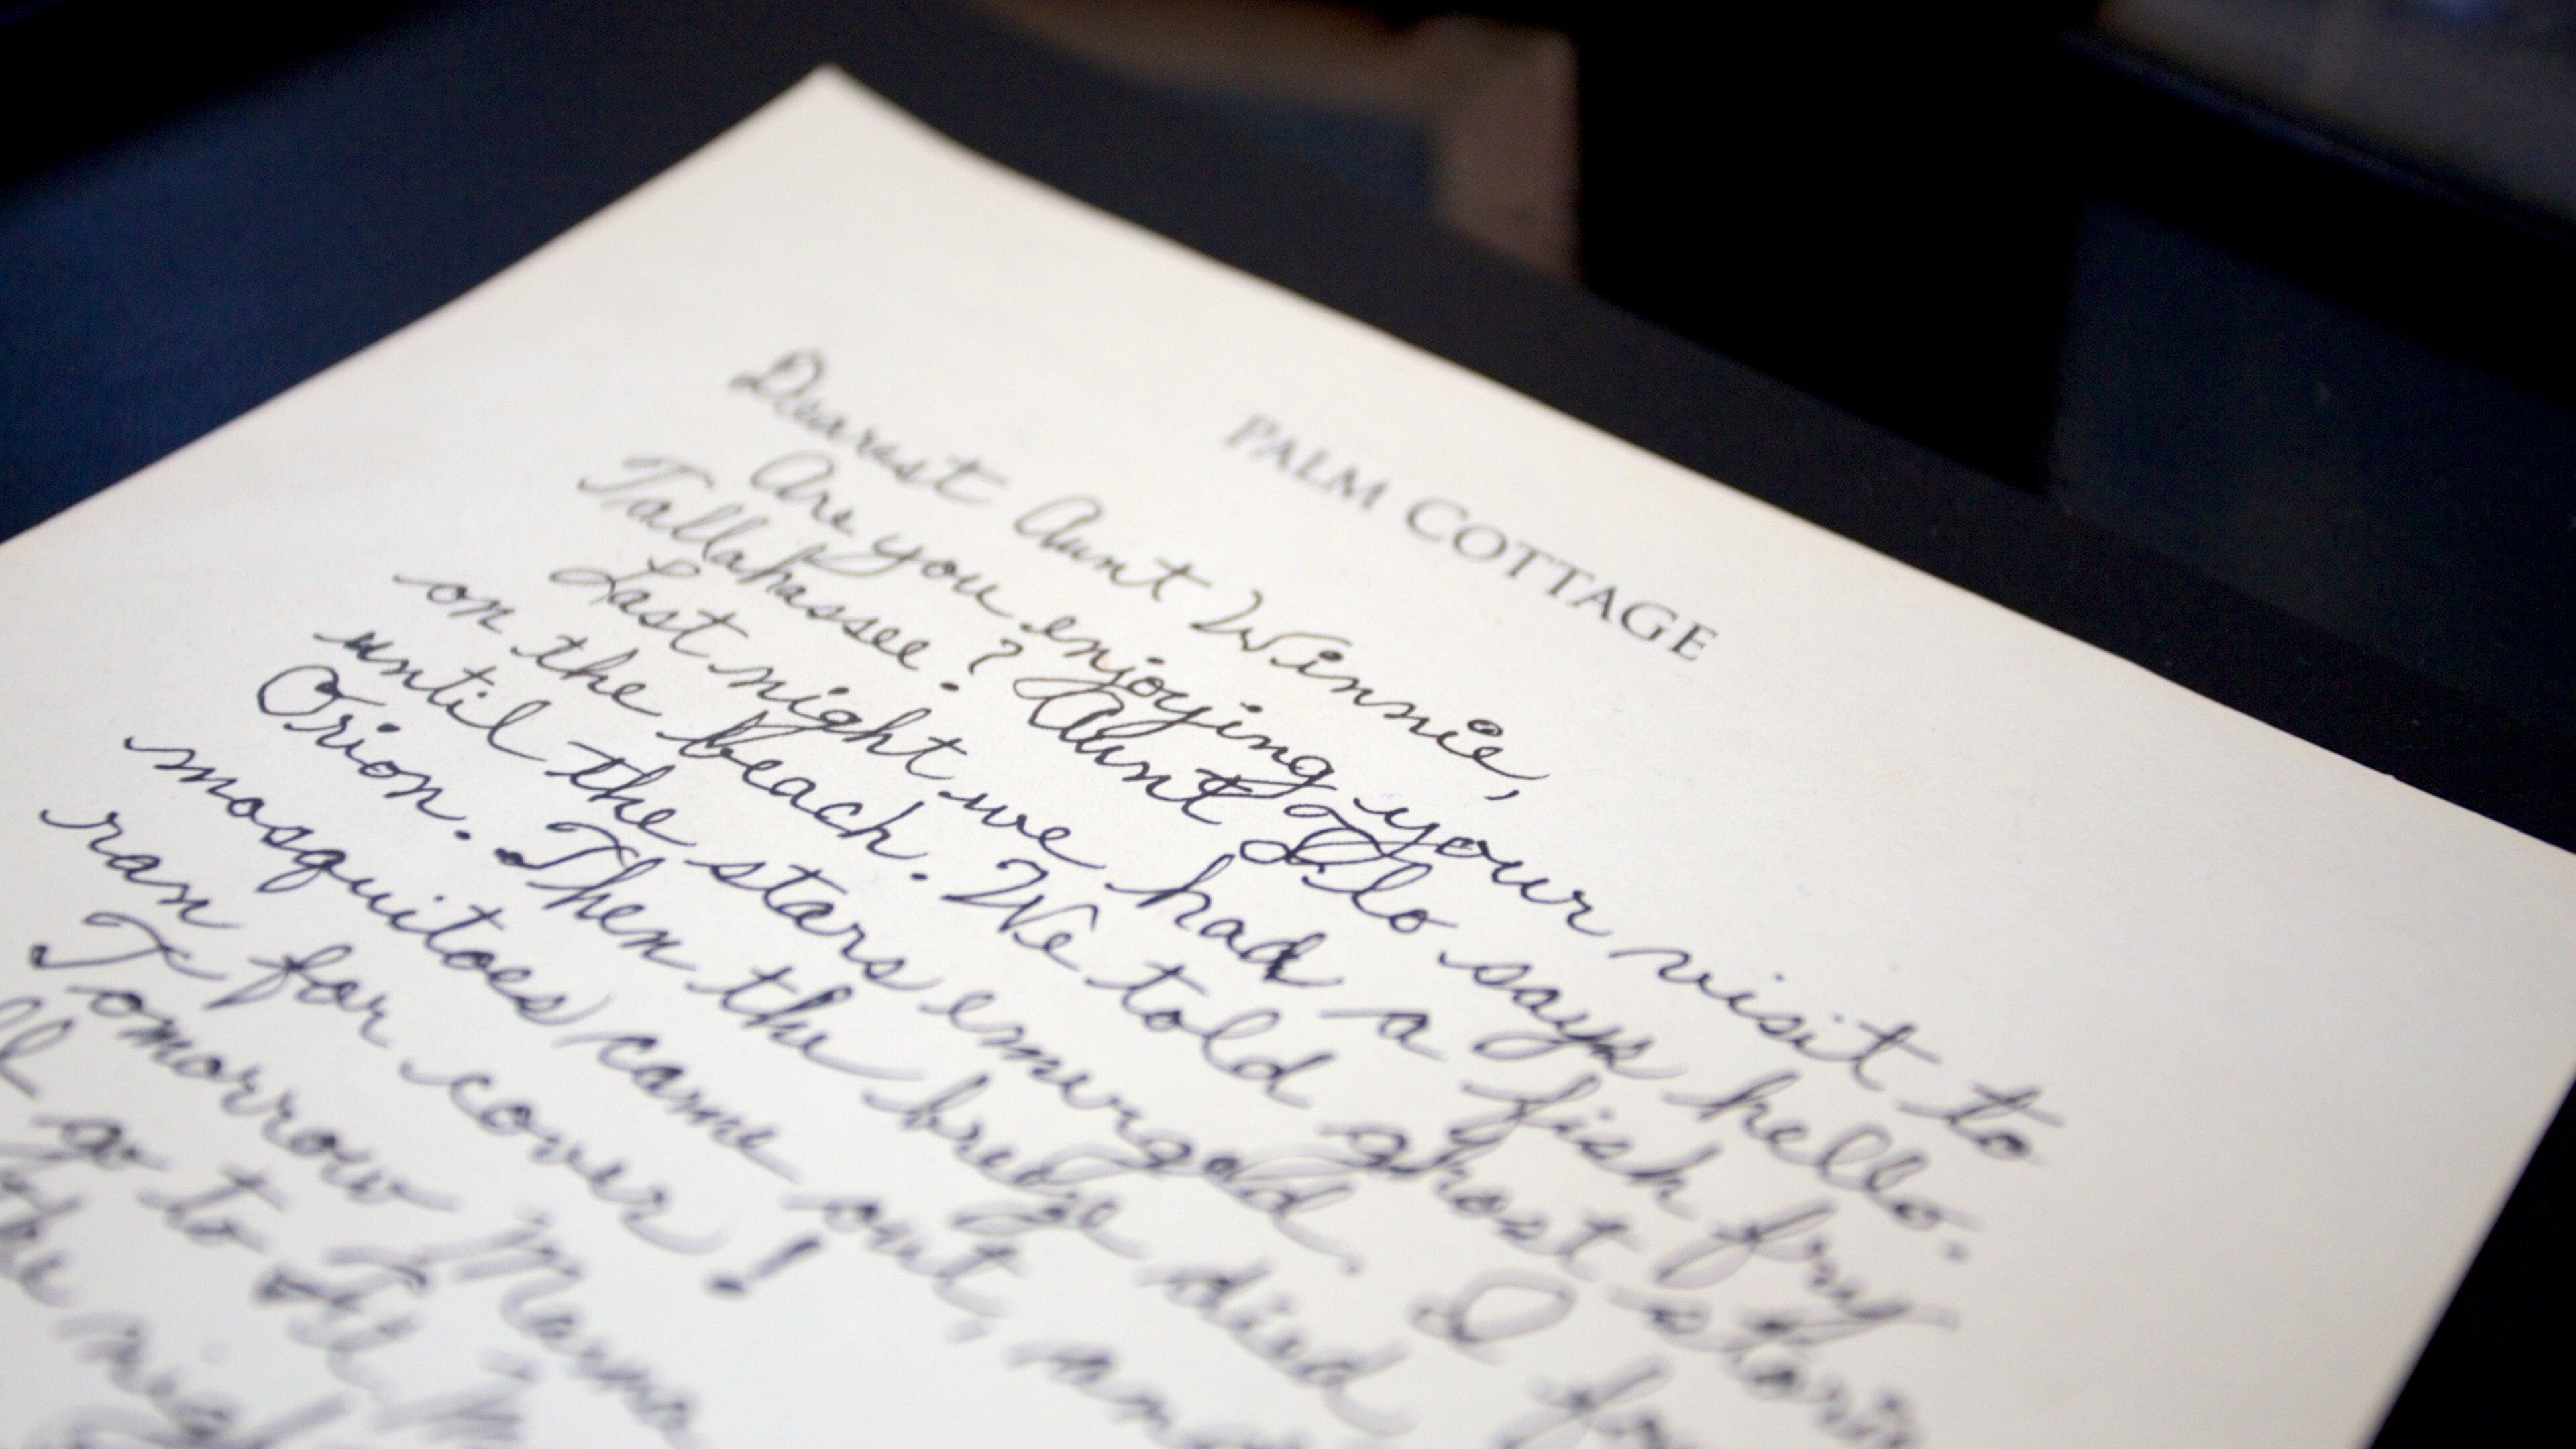 PALM COTTAGE
Dearest Aunt Winnie,
Are you enjoying your visit to
Tallahassee? Aunt Flo says hello.
Last night we had a fish fry
on the beach. We told ghost
until the stars emerged. I
Orion. Then the breeze died
mosquitoes came out,
ran for cover!
Tomorrow Mama
go to